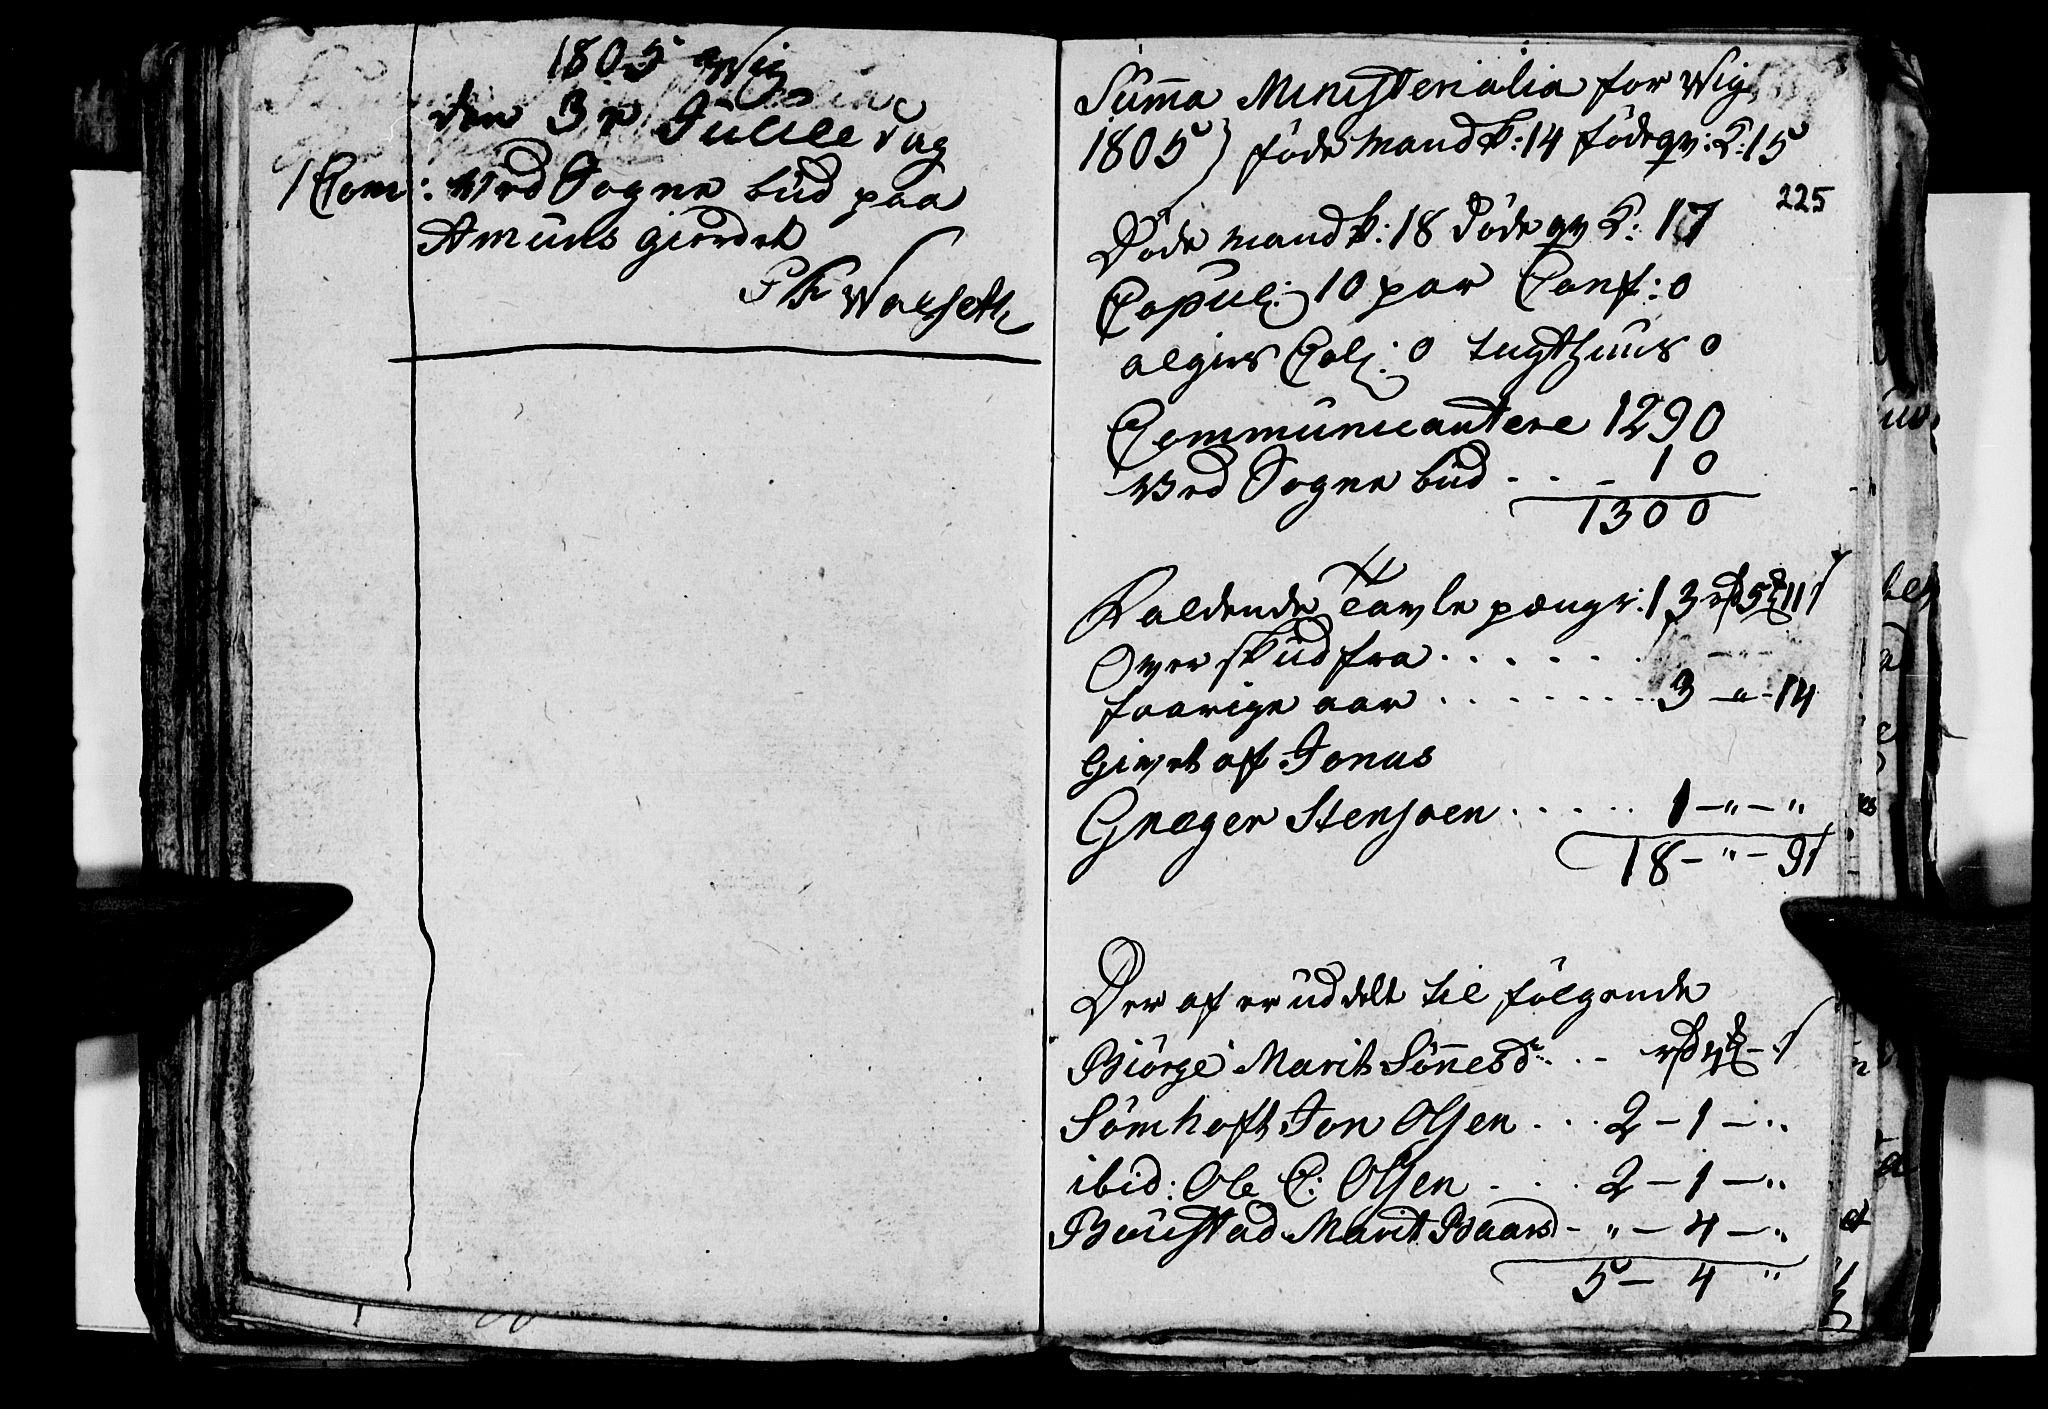 1805 Wiig
den 3e Juule dag
1 Com: Ved Sogne bud paa
Amuns gierdet
Walseth
Summa Ministerialia for Wig
1805) føde Mandk: 14 føde qv: k: 15
225
Døde Mandk: 18 Døde qv k: 17
Copul: 10 par Conf: 0
algiers Col: 0 tugthuus 0
Communicantere 1290
Ved Sogne bud . . . 10
1300
Faldende Tavle pænge: 13 rd 5 11 s
Over skud fra . . . . . .
faarige aar . . . . . . . 3 - " - 14
Givet af Jonas
Græger Stensoen . . . . . 1 - " - "
18 - " - 9 s
Der af er uddelt til følgende
Biørge Marit Sønnesd . . - rd - s
Sømhoft Jon Olsen . . . 2 - 1 - "
ibid: Ole C: Olsen . . . 2 - 1 - "
Bustad Marit Baars - " - 4 - "
5 - 4 "